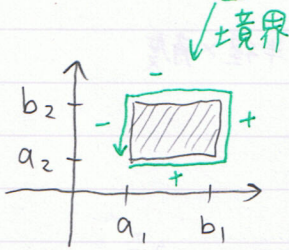 境界
−
b₂
−
+
a₂
+
a₁
b₁